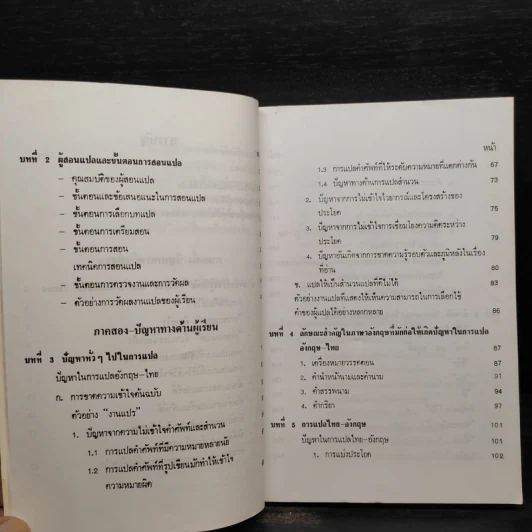 บทที่ 2 ผู้สอนแปลและขั้นตอนการสอนแปล
– คุณสมบัติของผู้สอนแปล
– ขั้นตอนและข้อเสนอแนะในการสอนแปล
– ขั้นตอนการเลือกบทแปล
– ขั้นตอนการเตรียมสอน
– ขั้นตอนการสอน
เทคนิคการสอนแปล
– ขั้นตอนการตรวจงานและการวัดผล
– ตัวอย่างการวัดผลงานแปลของผู้เรียน
ภาคสอง-ปัญหาทางด้านผู้เรียน
บทที่ 3 ปัญหาทั่วๆ ไปในการแปล
ปัญหาในการแปลอังกฤษ-ไทย
ก. การขาดความเข้าใจต้นฉบับ
ตัวอย่าง "งานแปร"
1. ปัญหาจากความไม่เข้าใจคำศัพท์และสำนวน
1.1 การแปลคำศัพท์ที่มีความหมายหลายนัย
1.2 การแปลคำศัพท์ที่รูปเขียนมักทำให้เข้าใจ
ความหมายผิด
หน้า
1.3 การแปลคำศัพท์ที่ให้ระดับความหมายที่แตกต่างกัน 67
1.4 ปัญหาทางด้านการแปลสำนวน 73
2. ปัญหาจากการไม่เข้าใจไวยากรณ์และโครงสร้างของ
ประโยค 76
3. ปัญหาจากการไม่เข้าใจการเชื่อมโยงความคิดระหว่าง
ประโยค 79
4. ปัญหาอันเกิดจากการขาดความรู้รอบตัวและภูมิหลังในเรื่อง
ที่อ่าน 80
ข. แปลให้เป็นสำนวนแปลที่ดีไม่ได้ 83
ตัวอย่างงานแปลที่แสดงให้เห็นความสามารถในการเลือกใช้
คำของผู้แปลได้อย่างหลากหลาย 86
บทที่ 4 ลักษณะสำคัญในภาษาอังกฤษที่มักก่อให้เกิดปัญหาในการแปล
อังกฤษ-ไทย 87
1. เครื่องหมายวรรคตอน 87
2. คำนำหน้านามและคำนาม 91
3. คำสรรพนาม 94
4. คำกริยา 97
บทที่ 5 การแปลไทย-อังกฤษ 101
ปัญหาในการแปลไทย-อังกฤษ 101
1. การแบ่งประโยค 102